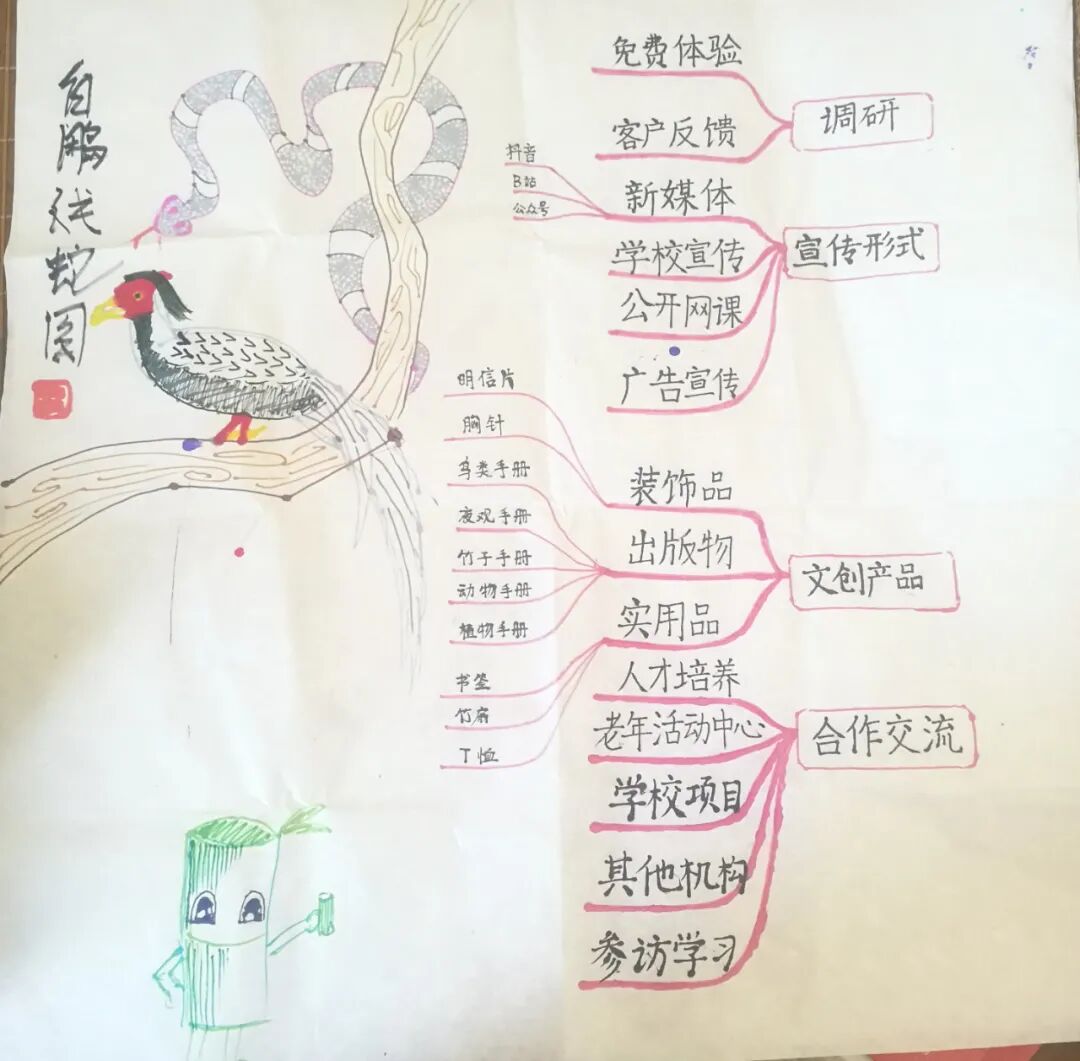 白鹇戏蛇图
免费体验
客户反馈
调研
抖音
B站
公众号
新媒体
学校宣传
公开网课
广告宣传
宣传形式
明信片
胸针
鸟类手册
夜观手册
竹子手册
动物手册
植物手册
书签
竹扇
T恤
装饰品
出版物
实用品
文创产品
人才培养
老年活动中心
学校项目
其他机构
参访学习
合作交流